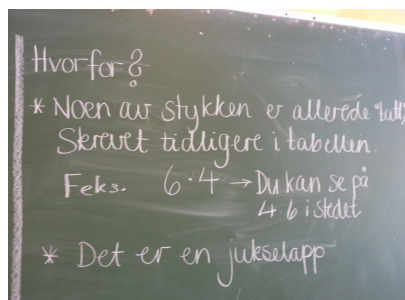 Hvorfor?
* Noen av stykken er allerede "tatt",
Skrevet tidligere i tabellen.
F.eks. 6·4 → Du kan se på
4·6 i stedet
* Det er en jukselapp